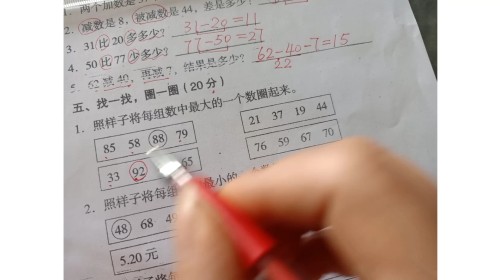 1. 两个加数是
2. 减数是8，被减数是44，差是多少？
3. 31比20多多少？ 31－20=11
4. 50比77少多少？ 77－50=27
5. 62减40，再减7，结果是多少？ 62－40－7=15
22
五、找一找，圈一圈（20分）
1. 照样子将每组数中最大的一个数圈起来。
85 58 88 79
21 37 19 44
33 92 65
76 59 67 70
2. 照样子将每组 最小的一
48 68
5.20元